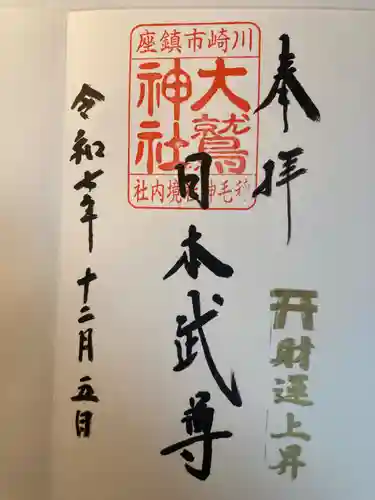 奉拝
川崎市鎮座
大鷲
神社
稲毛神社境内社
日本武尊
開財運上昇
令和七年十二月五日